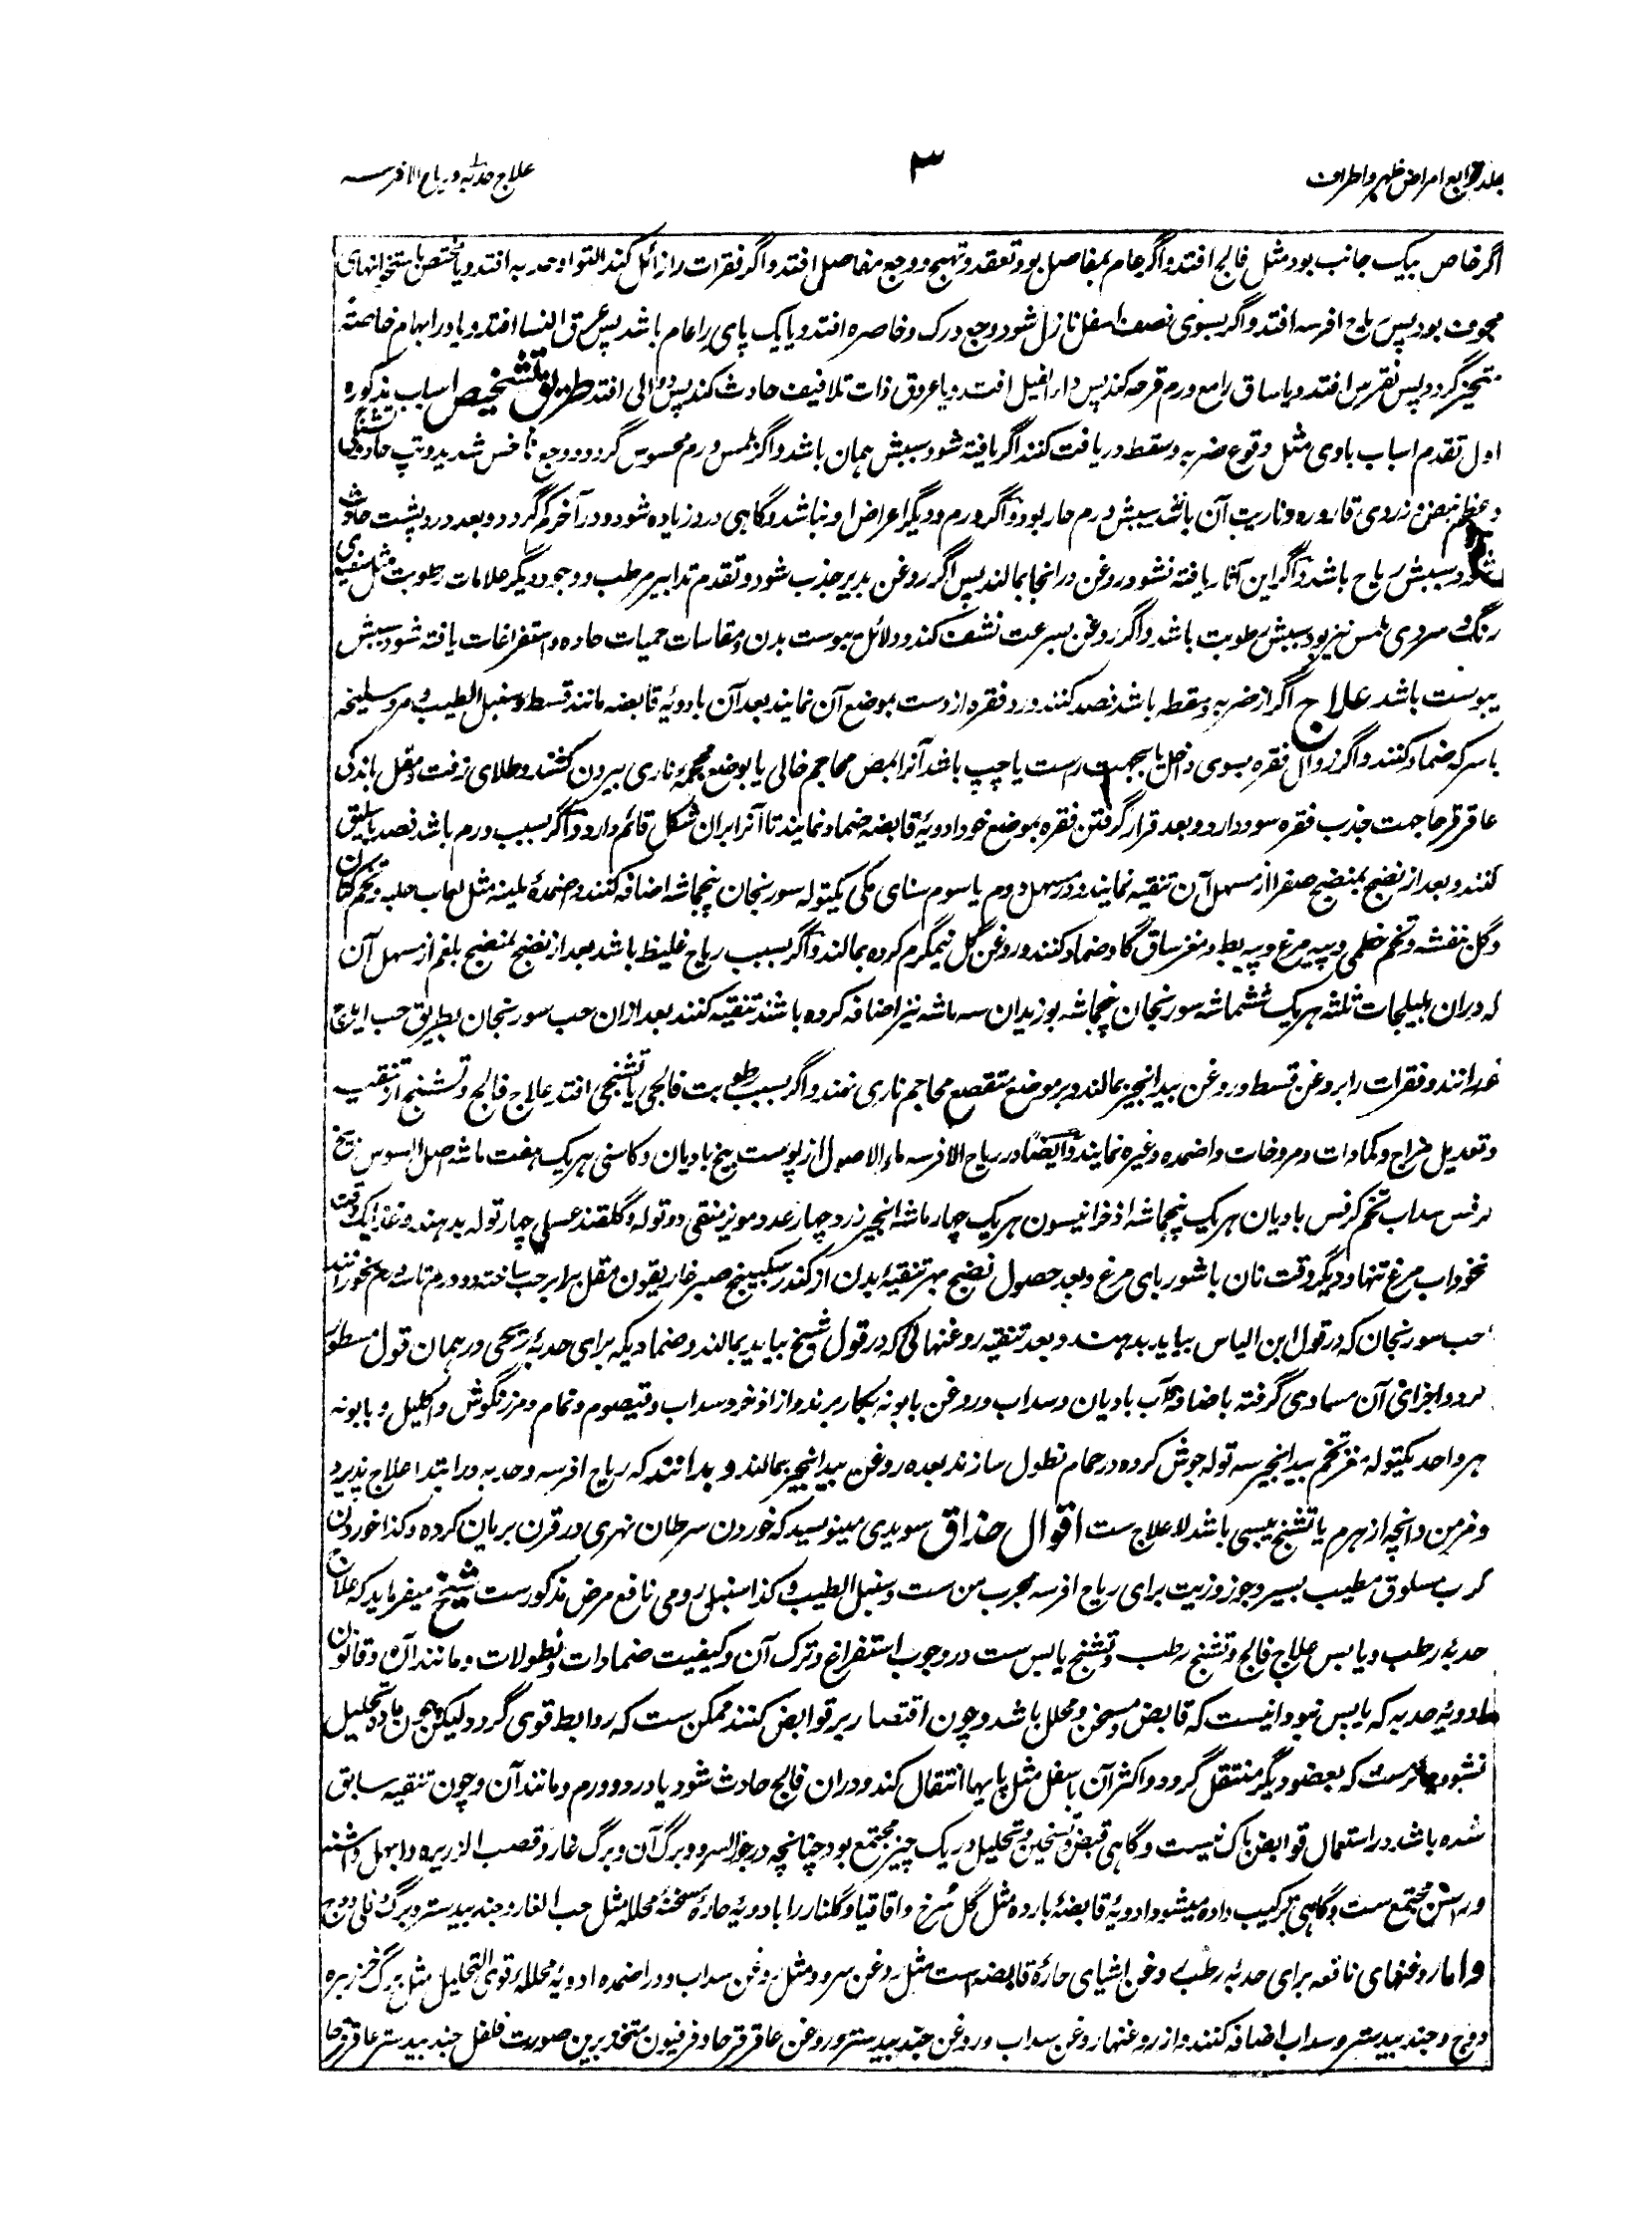 جلد رابع امراض ظہر و اطراف
۳
علاج حدبہ و ریاح الافرسہ
اگر خاص بیک جانب بود مثل فالج افتد و اگر عام بمفاصل بود تعقد و تہیج و وجع مفاصل افتد و اگر فقرات را زائل کند التوا و حدبہ افتد و یا مختص باستخوانهای
مجوف بود پس ریاح افرسہ افتد و اگر بسوی نصف اسفل نازل شود وجع ورک و خاصرہ افتد و یا یک پای را عام باشد پس عرق النسا افتد و یا در ابہام خاصتہً
متحیز گردد پس نقرس افتد و یا ساق را مع ورم قرحہ کند پس داء الفیل افتد و یا عروق ذات تلافیف حادث کند پس دوالی افتد طریق تشخیص اسباب مذکورہ
اول تقدم اسباب بادی مثل وقوع ضربہ و سقطہ دریافت کنند اگر یافتہ شود سببش ہمان باشد و اگر بلمس ورم محسوس گردد و وجع ناخس شدید و تپ حاد و تشنگی
و عظم نبض و زردی قارورہ و ناریت آن باشد سببش ورم حار بود و اگر ورم و دیگر اعراض او نباشد و گاہی درد زیادہ شود و در آخر کم گردد و بعد درد پشت حادث
شود سببش ریاح باشد و اگر این آثار یافتہ نشود روغن در انجا بمالند پس اگر روغن بدیر جذب شود و تقدم تدابیر مرطب و وجود دیگر علامات رطوبت مثل سفیدی
رنگ و سردی ملمس نیز بود سببش رطوبت باشد و اگر روغن بسرعت نشف کند و دلائل یبوست بدن و مقاسات حمیات حادہ و استفراغات یافتہ شود سببش
یبوست باشد علاج اگر از ضربہ و سقطہ باشد فصد کنند و رد فقرہ از دست بموضع آن نمایند بعد آن بادویۂ قابضہ مانند قسط و سنبل الطیب و مر و سلیخہ
با سرکہ ضماد کنند و اگر زوال فقرہ بسوی داخل یا بجہت راست یا چپ باشد آنرا بمص محاجم خالی یا بوضع محجمۂ ناری بیرون کشند و طلای زفت و مقل باندکی
عاقرقرحا جہت جذب فقرہ سود دارد و بعد قرار گرفتن فقرہ بموضع خود ادویۂ قابضہ ضماد نمایند تا آنرا بران شکل قائم دارد و اگر بسبب ورم باشد فصد باسلیق
کنند و بعد از نضج بمنضج صفرا از مسہل آن تنقیہ نمایند و در مسہل دوم یا سوم سنای مکی یکتولہ سورنجان پنجماشہ اضافہ کنند و ضمدۂ ملینہ مثل لعاب حلبہ و تخم کتان
و گل بنفشہ و تخم خطمی و پیہ مرغ و پیہ بط و مغز ساق گاو ضماد کنند و روغن گل نیمگرم کردہ بمالند و اگر بسبب ریاح غلیظ باشد بعد از نضج بمنضج بلغم از مسہل آن
کہ دران ہلیلجات ثلثہ ہر یک ششماشہ سورنجان پنجماشہ بوزیدان سہ ماشہ نیز اضافہ کردہ باشند تنقیہ کنند بعد ازان حب سورنجان بطریق حب ایارج
خورانند و فقرات را بروغن قسط و روغن بیدانجیر بمالند و بر موضع متقصع محاجم ناری نہند و اگر بسبب رطوبت فالجی یا تشنجی افتد علاج فالج و تشنج از تنقیہ
و تعدیل مزاج و کمادات و مروخات و اضمدہ وغیرہ نمایند و ایضاً در ریاح الافرسہ ماء الاصول از پوست بیخ بادیان و کاسنی ہر یک ہفت ماشہ اصل السوس بیخ
کرفس سداب تخم کرفس بادیان ہر یک پنجماشہ اذخر انیسون ہر یک چہار ماشہ انجیر زرد چہار عدد مویز منقی دو تولہ و گلقند عسلی چہار تولہ بدہند و غذا یک وقت
نخوداب مرغ تنہا و دیگر وقت نان با شوربای مرغ و بعد حصول نضج بہر تنقیۂ بدن از کندر سکبینج صبر غاریقون مقل برابر حب ساختہ دو درم تا سہ درم بخورانند
حب سورنجان کہ در قول ابن الیاس بیاید بدہند و بعد تنقیہ روغنہائی کہ در قول شیخ بیاید بمالند و ضمادیکہ برای حدبۂ ریحی در ہمان قول مسطور
گردد اجزای آن مساوی گرفتہ باضافۂ آب بادیان و سداب و روغن بابونہ بکار برند و از اذخر و سداب و قیصوم و نمام و مرزنگوش و اکلیل و بابونہ
ہر واحد یکتولہ مغز تخم بیدانجیر سہ تولہ جوش کردہ در حمام نطول سازند بعدہ روغن بیدانجیر بمالند و بدانند کہ ریاح افرسہ و حدبہ در ابتدا علاج پذیرد
و مزمن و آنچہ از ہرم یا تشنج یبسی باشد لا علاج ست اقوال حذاق سویدی مینویسد کہ خوردن سرطان نہری در قرن بریان کردہ و کذا خوردن
کرب مسلوق مطیب بسیر و جوز و زیت برای ریاح افرسہ مجرب من ست و سنبل الطیب و کذا سنبل رومی نافع مرض مذکورست شیخ میفرماید کہ علاج
حدبۂ رطب و یابس علاج فالج و تشنج رطب و تشنج یابس ست در وجوب استفراغ و ترک آن و کیفیت ضمادات و نطولات و مانند آن و قانون
ادویۂ حدبہ کہ یابس نبود انیست کہ قابض و مسخن و محلل باشد و چون اقتصار بر قوابض کنند ممکن ست کہ روابط قوی گردد و لیکن چون مادہ تحلیل
نشود جائزست کہ بعضو دیگر منتقل گردد و اکثر آن باسفل مثل پایہا انتقال کند و دران فالج حادث شود یا درد و ورم و مانند آن و چون تنقیہ سابق
شدہ باشد در استعمال قوابض باک نیست و گاہی قبض و تسخین و تحلیل در یک چیز مجتمع بود چنانچہ در جوز السرو و برگ آن و برگ غار و قصب الذریرہ و ابہل و اشنہ
و راسن مجتمع ست و گاہی ترکیب دادہ میشود ادویۂ قابضۂ باردہ مثل گل سرخ و اقاقیا و گلنار را بادویۂ حارۂ مسخنۂ محللہ مثل حب الغار و جندبیدستر و برگ دفلی و وج
و اما روغنہای نافعہ برای حدبۂ رطب روغن اشیای حارۂ قابضہ است مثل روغن سرو و مثل روغن سداب و در اضمدہ ادویۂ محللۂ قوی التحلیل مثل برگ خرزہرہ
و وج و جندبیدستر و سداب اضافہ کنند و از روغنہا روغن سداب و روغن جندبیدستر و روغن عاقرقرحا و فرفیون متخذ برین صورت فلفل جندبیدستر عاقرقرحا